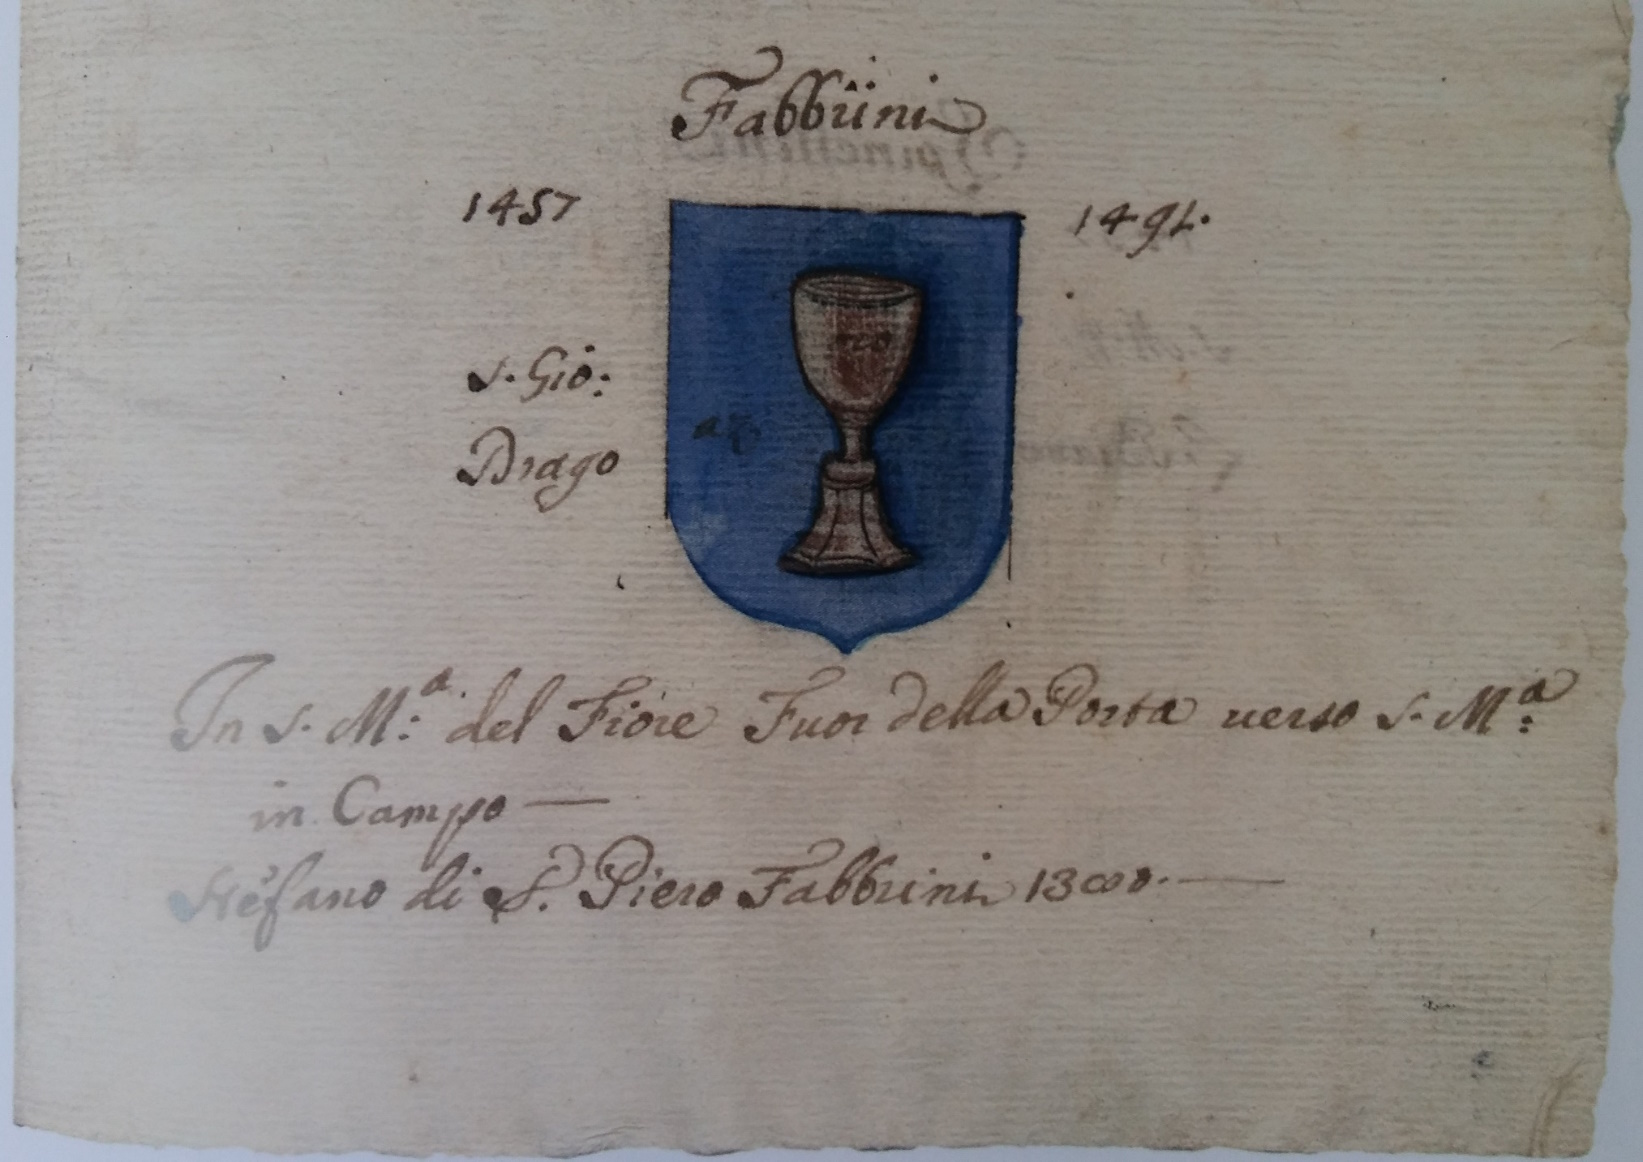 Fabbrini
1457
1491.
S. Gio:
Drago
az.
In S. M:ª del Fiore Fuor della Porta uerso S. M:ª
in Campo —
Stefano di S. Piero Fabbrini 13000. —